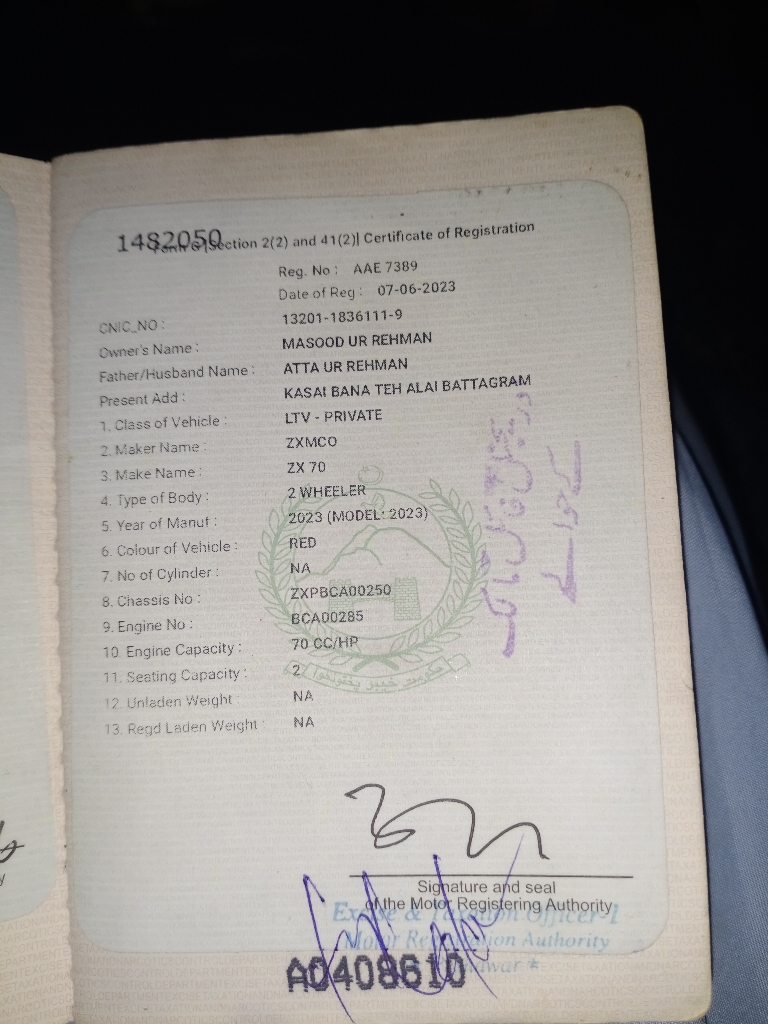 1482050
Form G |Section 2(2) and 41(2)| Certificate of Registration
Reg. No : AAE 7389
Date of Reg : 07-06-2023
CNIC_NO : 13201-1836111-9
Owner's Name : MASOOD UR REHMAN
Father/Husband Name : ATTA UR REHMAN
Present Add : KASAI BANA TEH ALAI BATTAGRAM
1. Class of Vehicle : LTV - PRIVATE
2. Maker Name : ZXMCO
3. Make Name : ZX 70
4. Type of Body : 2 WHEELER
5. Year of Manuf : 2023 (MODEL: 2023)
6. Colour of Vehicle : RED
7. No of Cylinder : NA
8. Chassis No : ZXPBCA00250
9. Engine No : BCA00285
10. Engine Capacity : 70 CC/HP
11. Seating Capacity : 2
12. Unladen Weight : NA
13. Regd Laden Weight : NA
حکومت خیبر پختونخوا
اوریجنل فائل مالک
کے حوالے
Signature and seal
of the Motor Registering Authority
Excise & Taxation Officer-1
Motor Registration Authority
A0408610